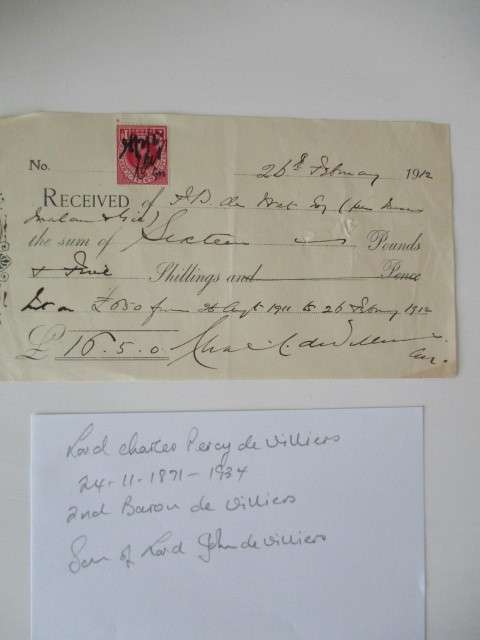 No. 26th February 1912
RECEIVED of A.B. de Wet Esq (per Messrs
the sum of Sixteen Pounds
& Five Shillings and Pence
Int on £650 from 26 Augt 1911 to 26 February 1912
£ 16.5.0 Chas. P. de Villiers
Lord Charles Percy de Villiers
24-11-1871-1934
2nd Baron de Villiers
Son of Lord John de Villiers